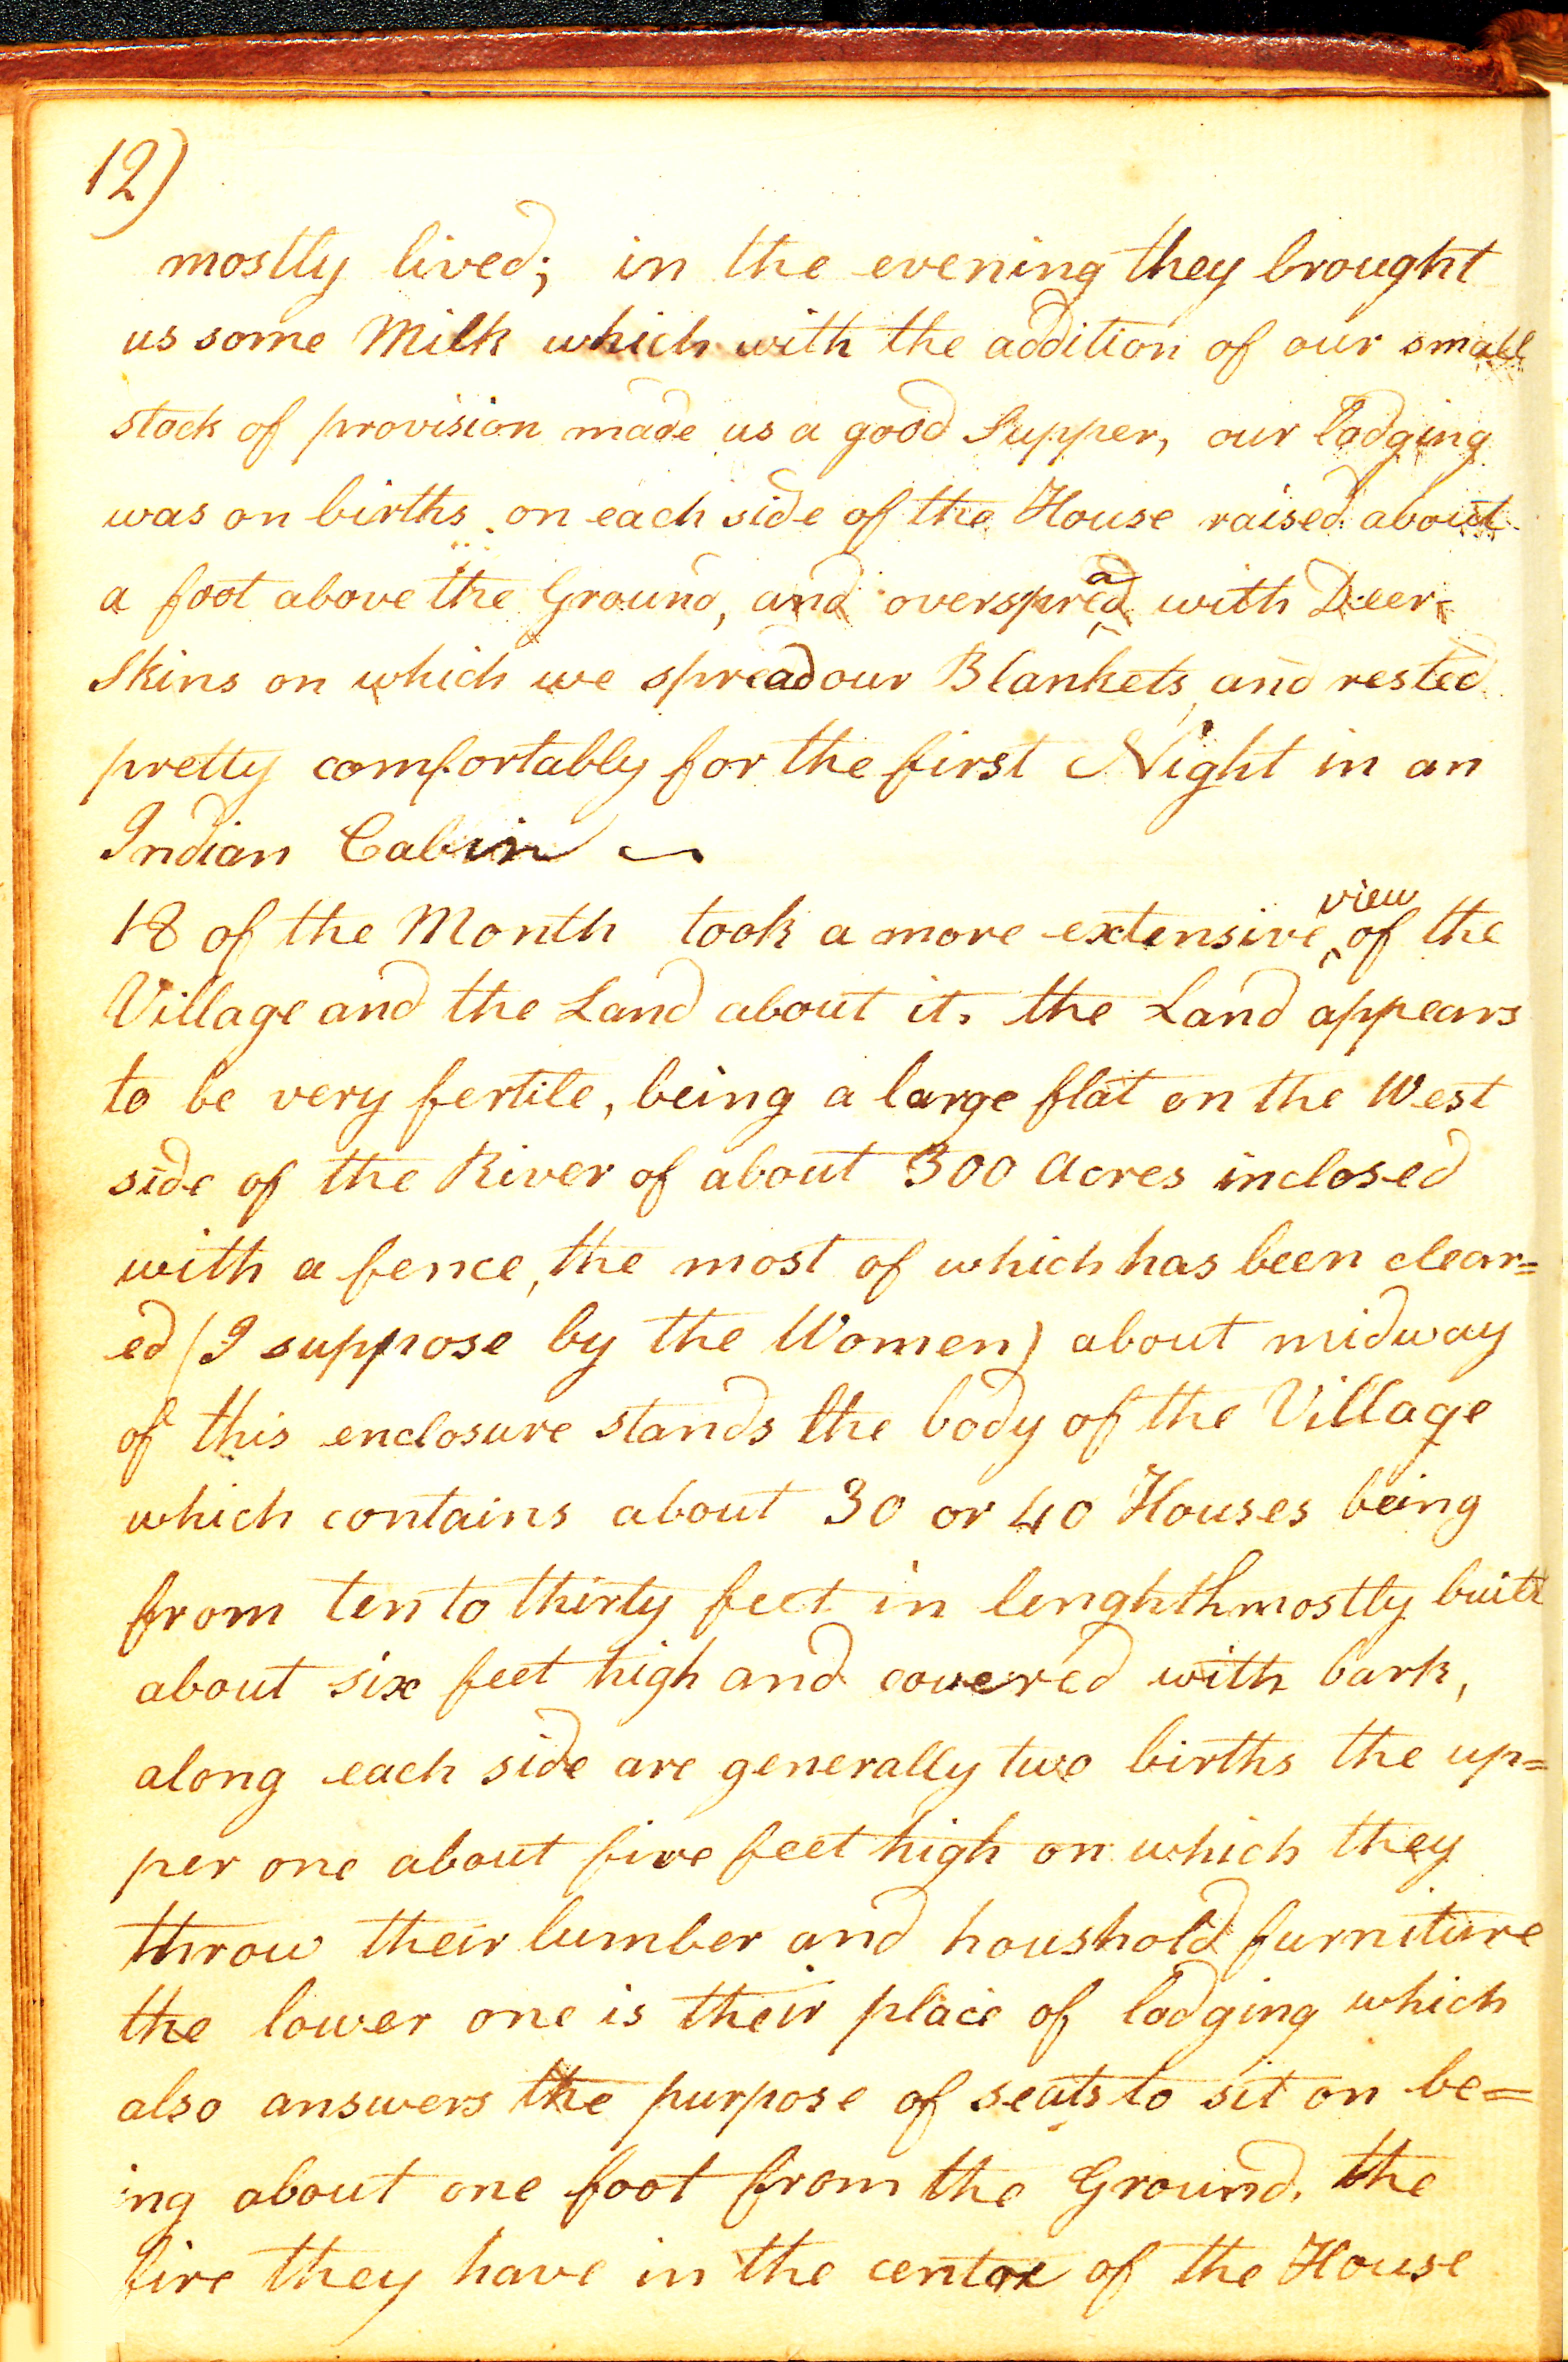 12)
mostly lived; in the evening they brought
us some Milk which with the addition of our small
stock of provision made us a good Supper, our lodging
was on births on each side of the House raised about
a foot above the Ground, and overspread with Deer-
Skins on which we spread our Blankets, and rested
pretty comfortably for the first Night in an
Indian Cabin
18 of the Month took a more extensive view of the
Village and the Land about it. the Land appears
to be very fertile, being a large flat on the West
side of the River of about 300 acres inclosed
with a fence, the most of which has been clear=
ed (I suppose by the Women) about midway
of this enclosure stands the body of the Village
which contains about 30 or 40 Houses being
from ten to thirty feet in lenghth mostly built
about six feet high and covered with bark,
along each side are generally two births the up=
per one about five feet high on which they
throw their lumber and houshold furniture
the lower one is their place of lodging which
also answers the purpose of seats to sit on be=
ing about one foot from the Ground. the
fire they have in the centre of the House